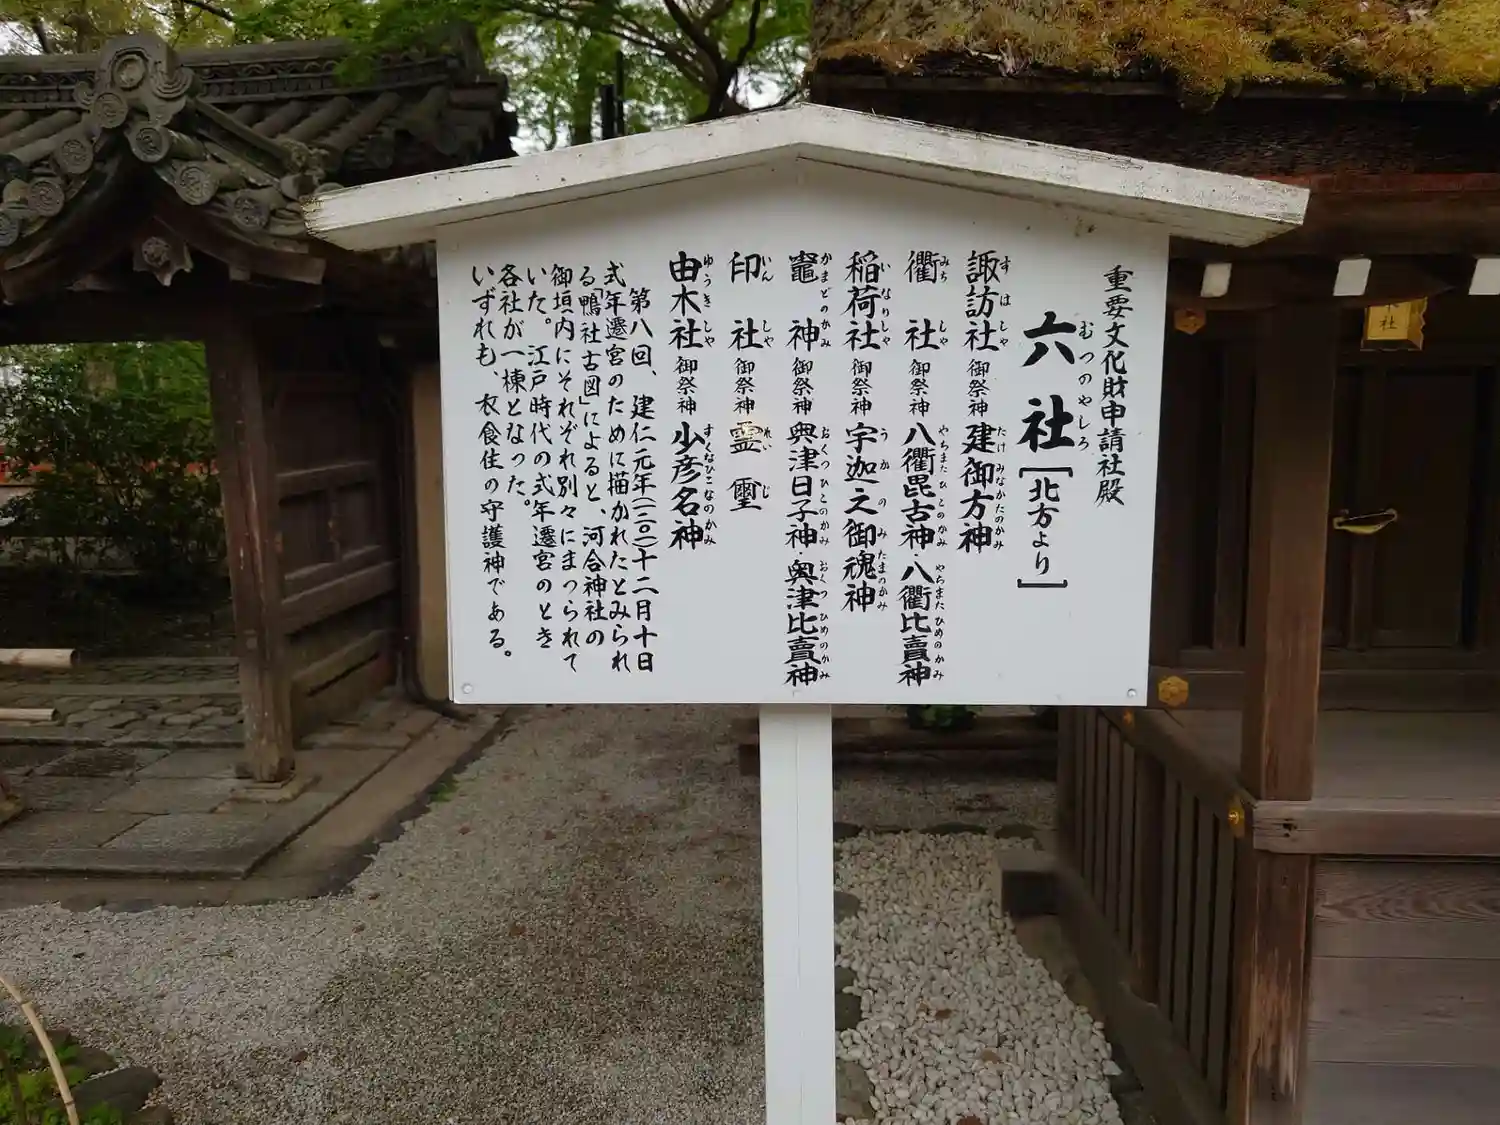 重要文化財申請社殿
六社[北方より]
むつのやしろ
諏訪社 御祭神 建御方神
すはしや たけみなかたのかみ
衢社 御祭神 八衢毘古神・八衢比賣神
みちしや やちまたひこのかみ やちまたひめのかみ
稲荷社 御祭神 宇迦之御魂神
いなりしや うかのみたまのかみ
竈神 御祭神 奥津日子神・奥津比賣神
かまどのかみ おくつひこのかみ おくつひめのかみ
印社 御祭神 霊璽
いんしや れいじ
由木社 御祭神 少彦名神
ゆうきしや すくなひこなのかみ
第八回、建仁元年(二〇一)十二月十日
式年遷宮のために描かれたとみられ
る「鴨社古図」によると、河合神社の
御垣内にそれぞれ別々にまつられて
いた。江戸時代の式年遷宮のとき
各社が一棟となった。
いずれも、衣食住の守護神である。